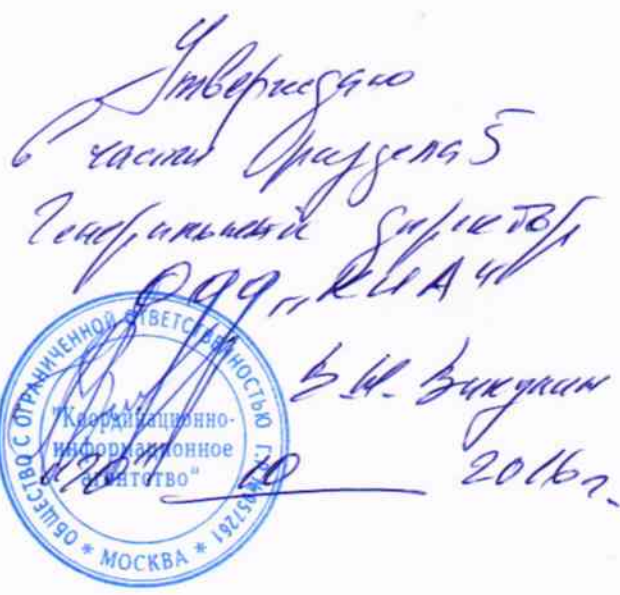 Утверждаю
в части раздела 5
Генеральный директор
ООО "КИА"
В.И. Викулин
"20" 10 2016 г.
ОБЩЕСТВО С ОГРАНИЧЕННОЙ ОТВЕТСТВЕННОСТЬЮ
"Координационно-
информационное
агентство"
* МОСКВА *